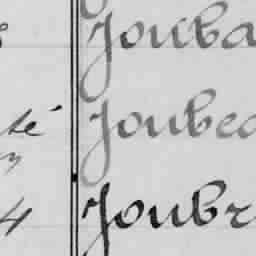 Jouba
té Joubea
4 Joubr